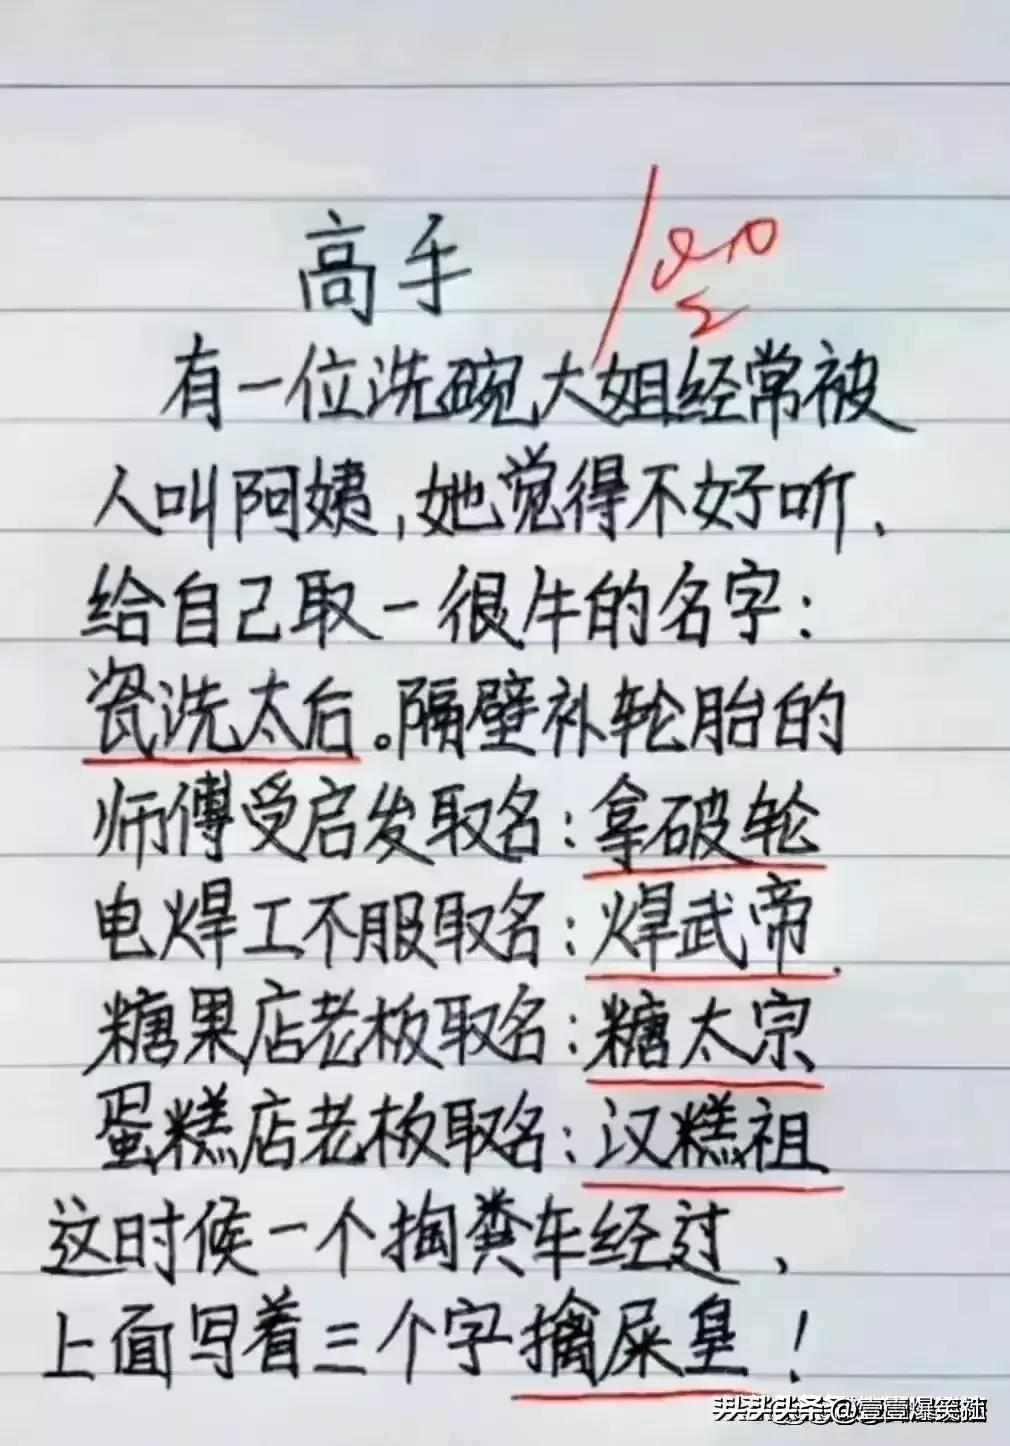 高手
100
有一位洗碗大姐经常被
人叫阿姨,她觉得不好听、
给自己取一很牛的名字:
瓷洗太后。隔壁补轮胎的
师傅受启发取名:拿破轮
电焊工不服取名:焊武帝.
糖果店老板取名:糖太宗
蛋糕店老板取名:汉糕祖
这时候一个掏粪车经过、
上面写着三个字擒屎皇!
头条@壹壹爆笑社